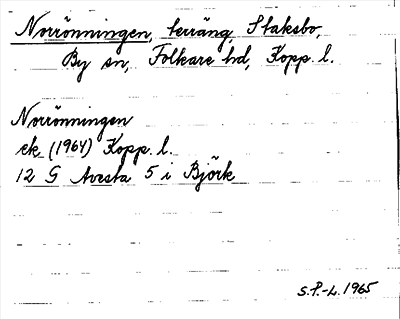 Norrönningen, terräng, Staksbo,
By sn, Folkare hd, Kopp. l.
Norrönningen
ek. (1964) Kopp. l.
12 G Avesta 5 i Björk
S.P.-L. 1965